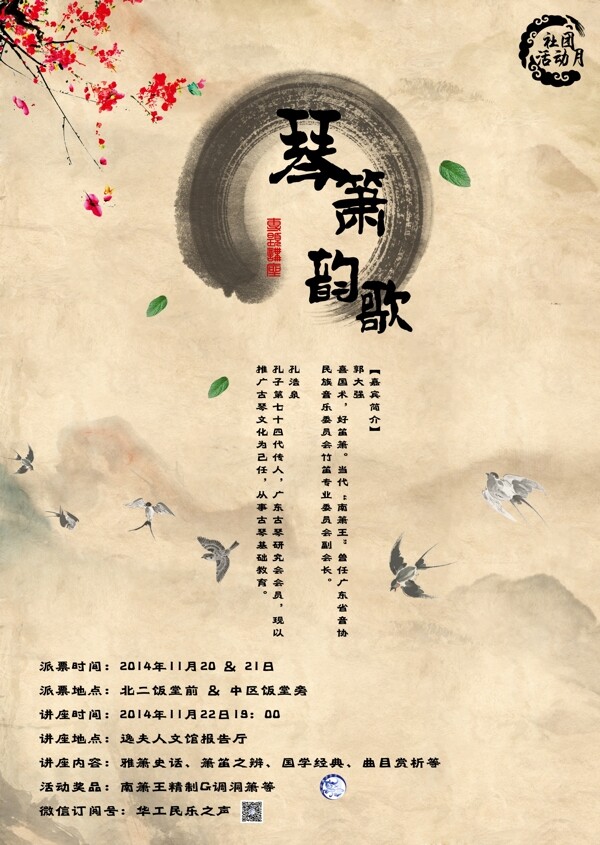 社团
活动月
琴
箫
韵
歌
专题讲座
【嘉宾简介】
郭大强
喜国术，好笛箫。当代“南箫王”曾任广东省音协
民族音乐委员会竹笛专业委员会副会长。
孔浩泉
孔子第七十四代传人，广东古琴研究会会员，现以
推广古琴文化为己任，从事古琴基础教育。
派票时间：2014年11月20 & 21日
派票地点：北二饭堂前 & 中区饭堂旁
讲座时间：2014年11月22日19：00
讲座地点：逸夫人文馆报告厅
讲座内容：雅箫史话、箫笛之辨、国学经典、曲目赏析等
活动奖品：南箫王精制G调洞箫等
微信订阅号：华工民乐之声